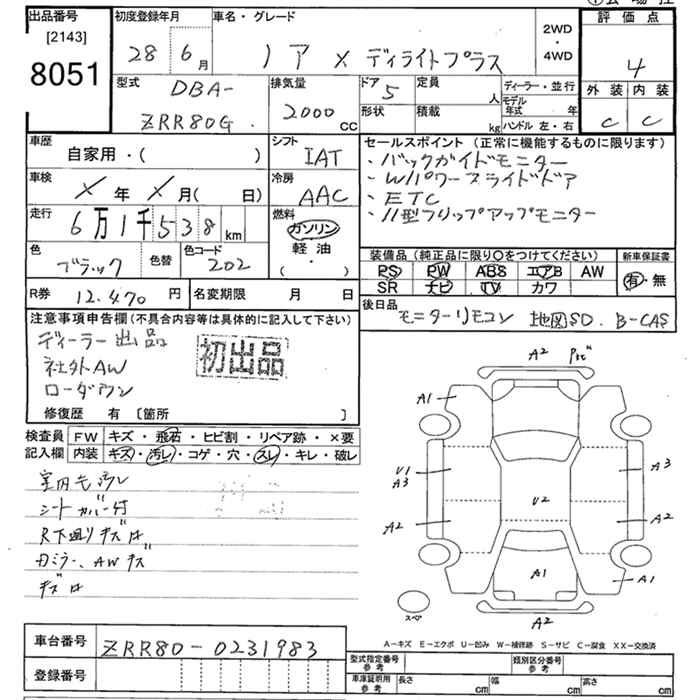 出品番号
[2143]
8051
初度登録年月
28 6月
車名・グレード
ノア X ディライトプラス
2WD
・
4WD
評価点
4
外装 内装
C C
型式
DBA-
ZRR80G
排気量
2000
cc
ドア
5
定員
人
形状
積載
kg
ディーラー・並行
モデル
年式 年
ハンドル 左・右
車歴
自家用・( )
シフト
IAT
車検
X年 X月( 日)
冷房
AAC
走行
6万1千538km
燃料
ガソリン
軽油
・
( )
色
ブラック
色替
色コード
202
R券 12,470円
名変期限 月 日
セールスポイント(正常に機能するものに限ります)
・バックガイドモニター
・Wパワースライドドア
・ETC
・11型フリップアップモニター
装備品(純正品に限り○をつけてください)
PS PW ABS エアB AW
SR ナビ TV カワ
新車保証書
有・無
後日品
モニターリモコン 地図SD. B-CAS
注意事項申告欄(不具合内容等は具体的に記入して下さい)
ディーラー出品
社外AW
ローダウン
初出品
修復歴 有 〔箇所 〕
検査員
記入欄
FW キズ・飛石・ヒビ割・リペア跡・×要
内装 キズ・汚レ・コゲ・穴・スレ・キレ・破レ
室内モ汚レ
シートカバー付
R下廻りキズロ
カミラー、AWキズ
キズロ
A2
A1
U1
A3
A2
U2
A1
A3
A2
A1
A2
スペア
A-キズ E-エクボ U-凹み W-補修跡 S-サビ C-腐食 XX-交換済
車台番号 ZRR80-0231983
登録番号
型式指定番号
参考
類別区分番号
参考
車庫証明用
参考
長さ cm 幅 cm 高さ cm